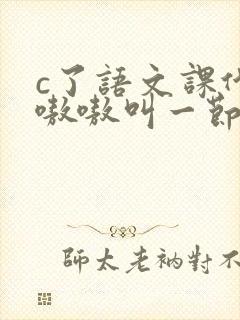 c了語文課
嗷嗷叫一節
師太老衲對不